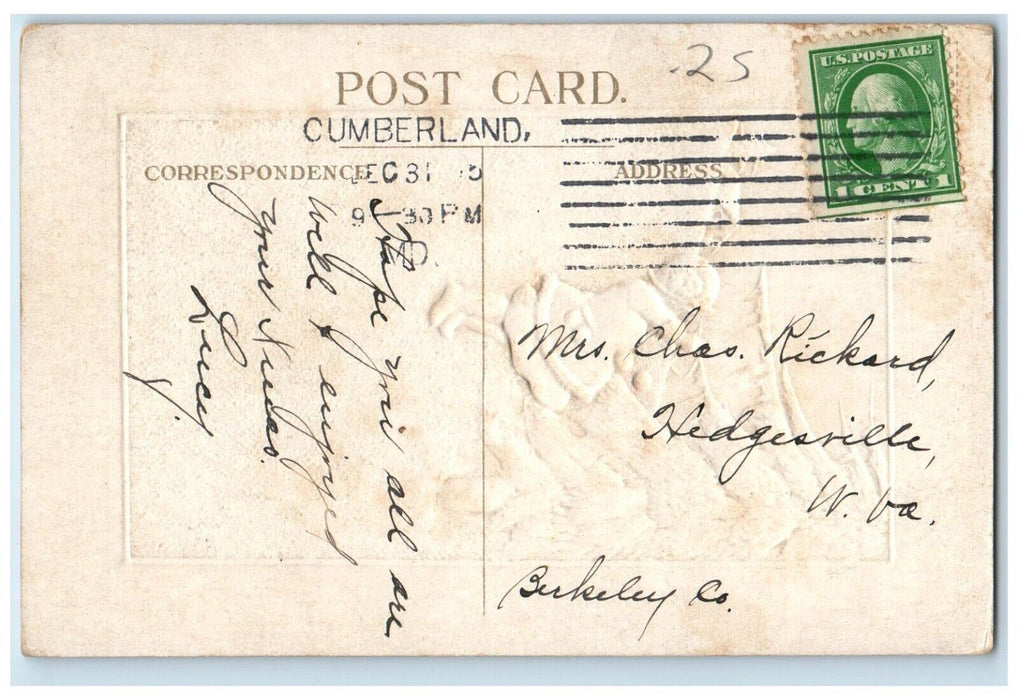 .25
U.S. POSTAGE
1 CENT 1
POST CARD.
CUMBERLAND,
DEC 31
9 30 PM
D.
CORRESPONDENCE
ADDRESS
Hope you all are
well & enjoyed
your
Lucy.
Mrs. Chas. Rickard,
Hedgesville,
W. Va.
Berkeley Co.